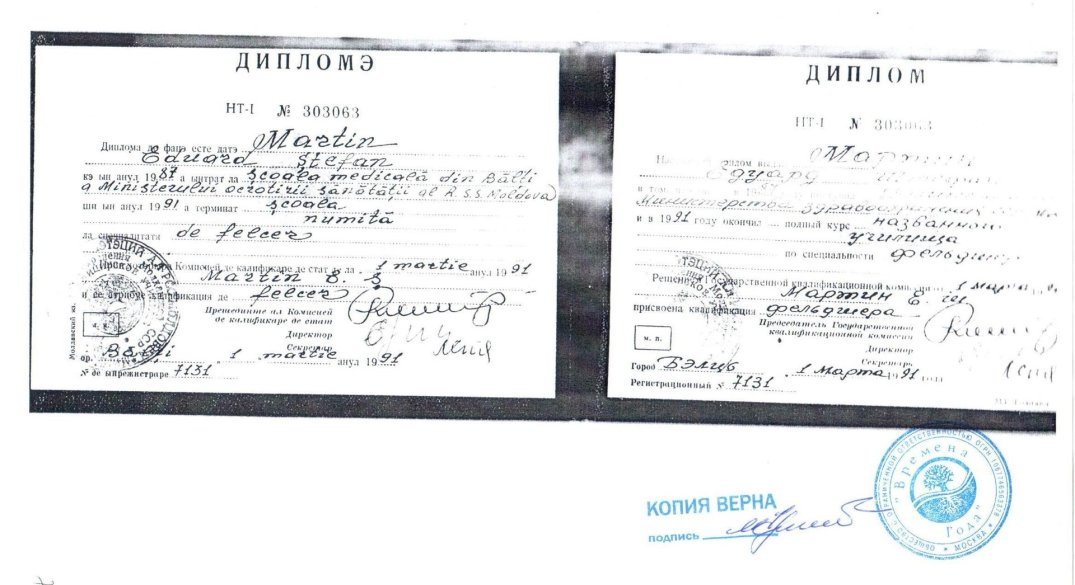 ДИПЛОМЭ
НТ-I № 303063
Диплома де фацэ есте датэ Martin
Eduard Ștefan
кэ ын анул 1987 а ынтрат ла școala medicală din Bălți
a Ministerului ocrotirii sănătății al R.S.S. Moldova
ши ын анул 1991 а терминат școala
numită
ла специалитатя de felcer
Комисией де калификаре де стат де ла 1 martie анул 1991
Martin E. Ș
и се атрибуе калификация де felcer
Прешединте ал Комисией
де калификаре де стат
Директор
Секретар
ор. Bălți 1 martie анул 1991
№ де ынрежистраре 7131
ДИПЛОМ
НТ-I № 303063
диплом Мартин
Едуард
в 1987
Министерства здравоохранения
и в 1991 году окончил полный курс названного
училища
по специальности фельдшер
Решением Государственной квалификационной комиссии 1 марта
Мартин Е. Ш
присвоена квалификация фельдшера
Председатель Государственной
квалификационной комиссии
Директор
Секретарь
м. п.
Город Бэлць 1 марта 1991 года
Регистрационный № 7131
КОПИЯ ВЕРНА
подпись
ОБЩЕСТВО С ОГРАНИЧЕННОЙ ОТВЕТСТВЕННОСТЬЮ ОГРН
"Времена
Года"
МОСКВА